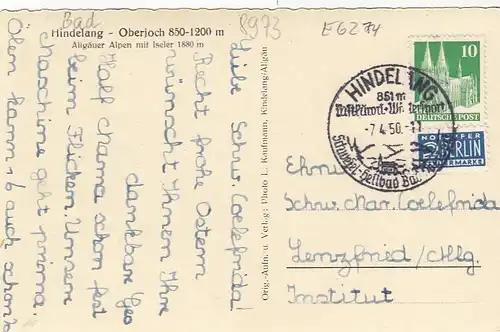 Bad
Hindelang - Oberjoch 850-1200 m
Allgäuer Alpen mit Iseler 1880 m
8973
E6274
Liebe Schw. Coelefrida!
Recht frohe Ostern
wünscht Ihnen Ihre
dankbare
Half Mama schon fest
beim Flicken. Unsere
Maschine geht prima.
Oben kann's b auch schon
Orig.-Aufn. u. Verlag: Photo L. Kaufmann, Hindelang/Allgäu
HINDELANG
851 m
Luftkurort - Wintersport
-7.4.50.-11
Schwefel-Heilbad Bad
10
DEUTSCHE POST
NOTOPFER
2 BERLIN
STEUERMARKE
Ehrw.
Schw. Mar. Coelefrida
Lenzfried/Allg.
Institut